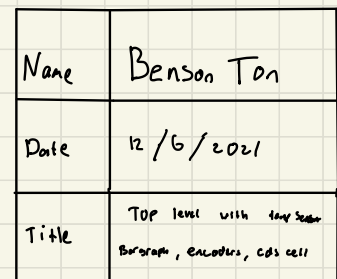 Name Benson Ton
Date 12/6/2021
Top level with temp sensor
Title
Bargraph, encoders, cds cell